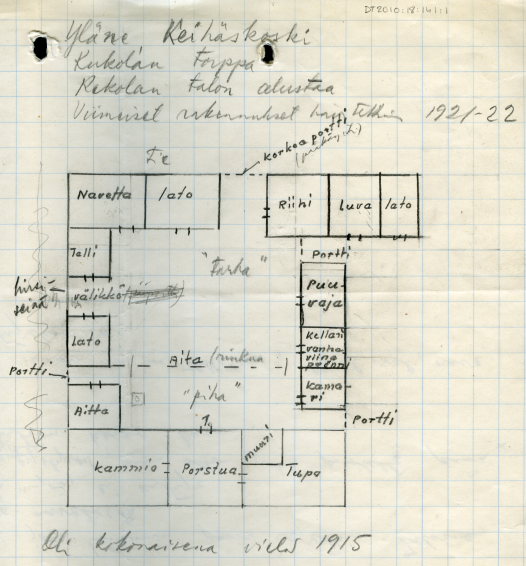 DT2010:18:141:1
Yläne Keihäskoski
Kukolan torppa
Rekolan talon alustaa
Viimeiset rakennukset hajotettiin 1921-22
korkea portti
Navetta
lato
Riihi
Luva
lato
Talli
"Tarha"
Portti
Puu-
vaja
hirsi-
seinä
välikkö
Lato
Kellari
vanha
viina
pannu
Portti
Aita
Kama-
ri
Aitta
"piha"
Portti
muuri
Kammio
Porstua
Tupa
Oli kokonaisena vielä 1915